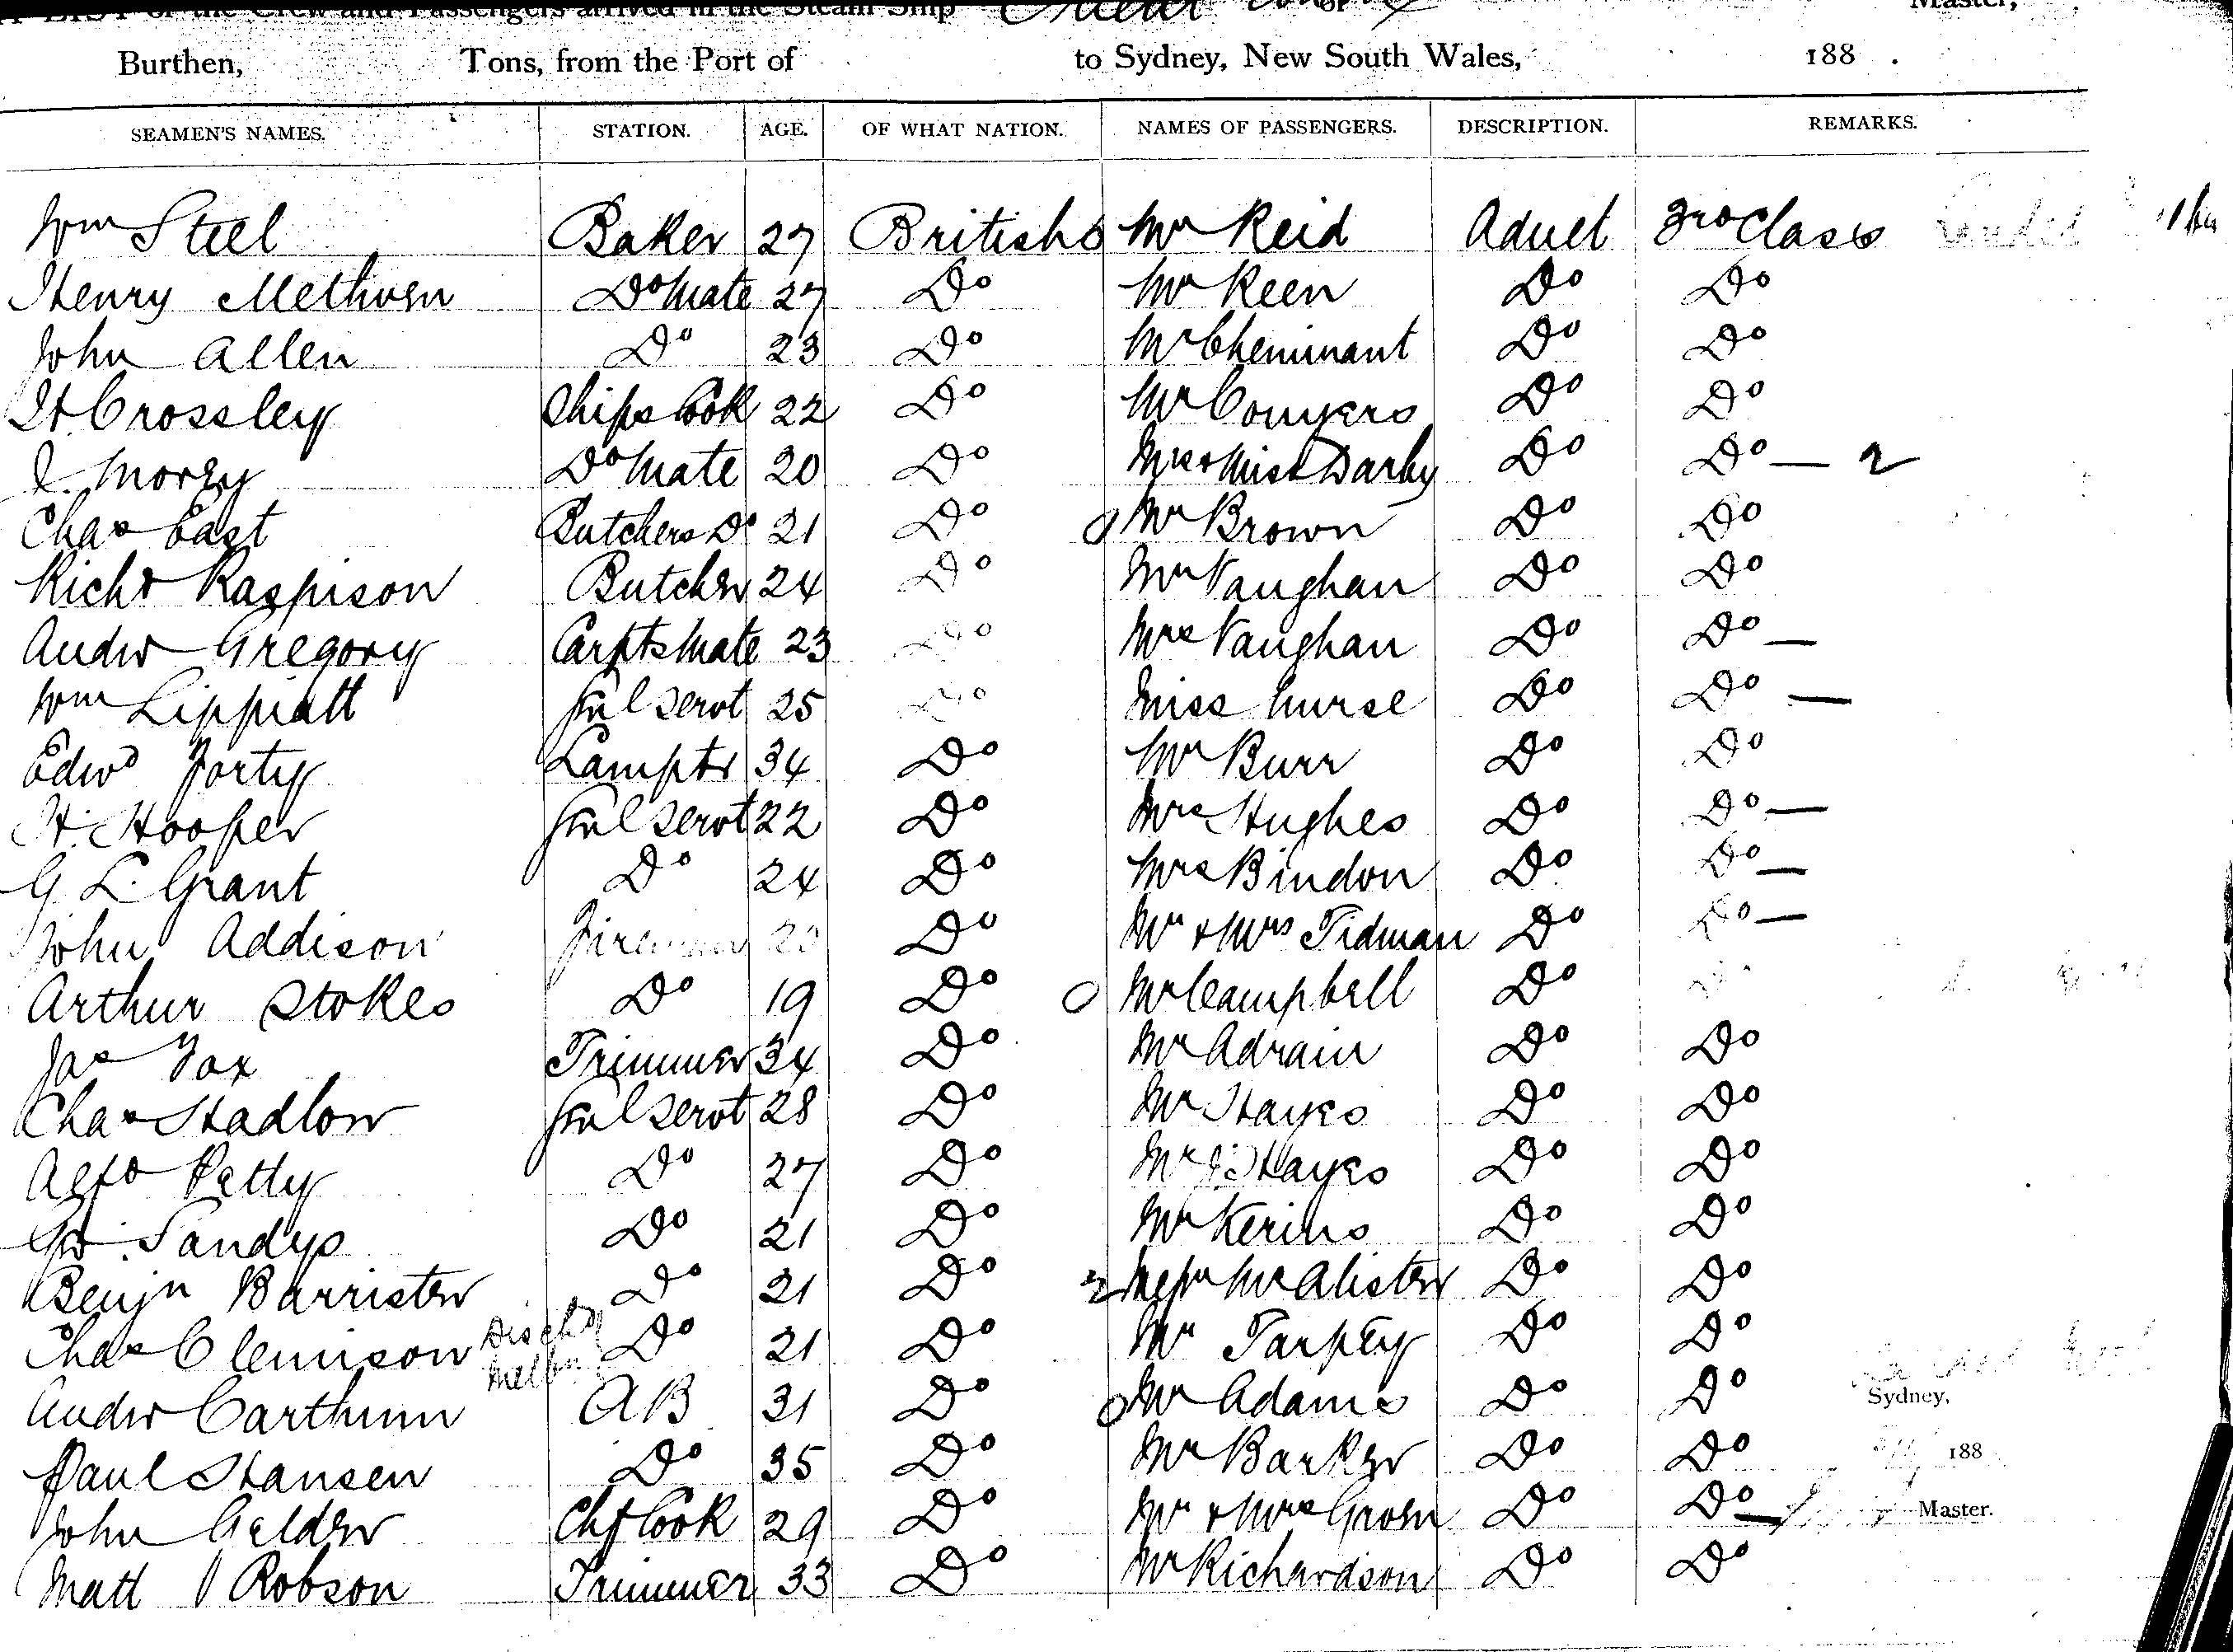 A LIST of the Crew and Passengers arrived in the Steam Ship Master,
Burthen, Tons, from the Port of to Sydney, New South Wales, 188 .
SEAMEN'S NAMES. STATION. AGE. OF WHAT NATION. NAMES OF PASSENGERS. DESCRIPTION. REMARKS.
Wm Steel Baker 27 British Mr Reid Aduct 3rd Class
Henry Methven Do Mate 27 Do Mr Keen Do Do
John Allen Do 23 Do Mr Cheminant Do Do
H Crossley Ships Cook 22 Do Mr Conyers Do Do
Morey Do Mate 20 Do Mrs & Miss Darby Do Do — 2
Chas East Butchers Do 21 Do Mr Brown Do Do
Richd Raspison Butcher 24 Do Mr Vaughan Do Do
Andw Gregory Carpts Mate 23 Do Mrs Vaughan Do Do —
Wm Lippiatt Genl Servt 25 Do Miss Nurse Do Do —
Edwd Forty Lamptr 34 Do Mr Burr Do Do
H. Hooper Genl Servt 22 Do Mrs Hughes Do Do —
G L. Grant Do 24 Do Mrs Bindon Do Do —
John Addison Fireman Do Mr & Mrs Tidman Do Do —
Arthur Stokes Do 19 Do Mr Campbell Do
Jas Fox Trimmer 34 Do Mr Adrain Do Do
Chas Hadlow Genl Servt 28 Do Mr Hayes Do Do
Alfd Petty Do 27 Do Mr Hayes Do Do
Sandys Do 21 Do Mr Kerins Do Do
Benjn Barrister Do 21 Do 2 McAlister Do Do
Chas Clennison Dischd Melbn Do 21 Do Mr Tarpey Do Do
Andw Carthum AB 31 Do Mr Adams Do Do
Sydney,
Paul Hansen Do 35 Do Mr Barker Do Do 188
John Gelder Chf Cook 29 Do Mr & Mrs Green Do Do — Master.
Matt Robson Trimmer 33 Do Mr Richardson Do Do